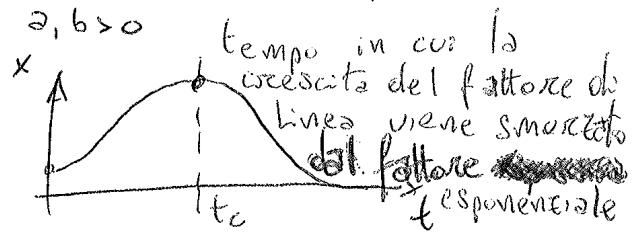 a, b > 0
x
tempo in cui la
crescita del fattore di
linea viene smorzato
dal fattore
esponenziale
t_c
t